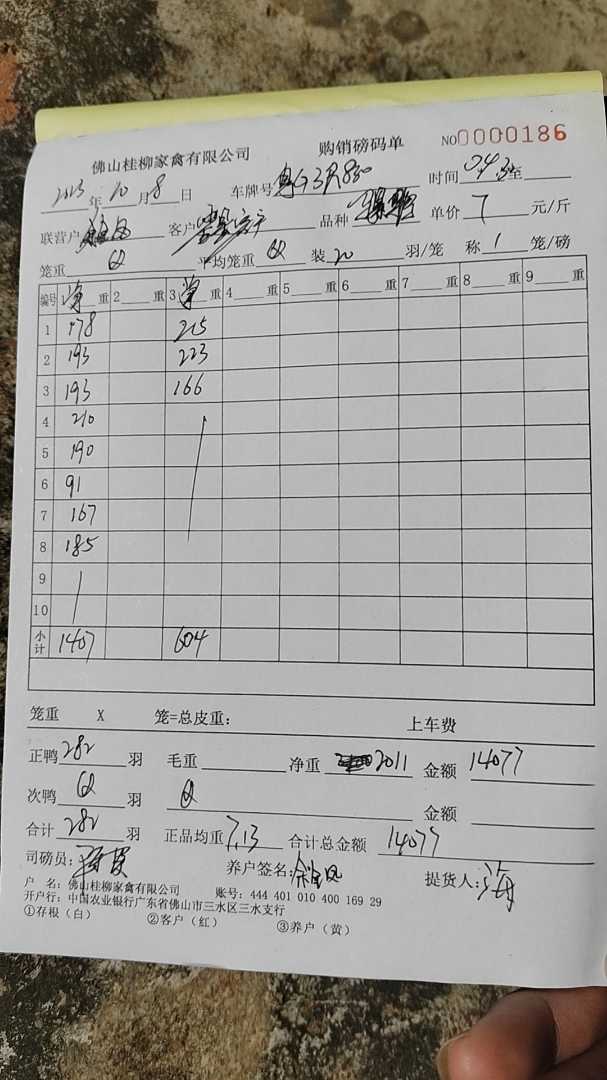 佛山桂柳家禽有限公司 购销磅码单 NO0000186
2023年10月8日 车牌号 时间 至
联营户 客户 品种 单价 7 元/斤
笼重 平均笼重 装 20 羽/笼 称 1 笼/磅
编号 净 重 2 重 3 重 4 重 5 重 6 重 7 重 8 重 9 重
1 178 215
2 193 223
3 193 166
4 210
5 190
6 91
7 167
8 185
9
10
小计 1407 604
笼重 X 笼=总皮重: 上车费
正鸭 282 羽 毛重 净重 2011 金额 14077
次鸭 羽 金额
合计 282 羽 正品均重 7.13 合计总金额 14077
司磅员: 养户签名: 提货人: 海
户 名: 佛山桂柳家禽有限公司 账号: 444 401 010 400 169 29
开户行: 中国农业银行广东省佛山市三水区三水支行
①存根（白） ②客户（红） ③养户（黄）